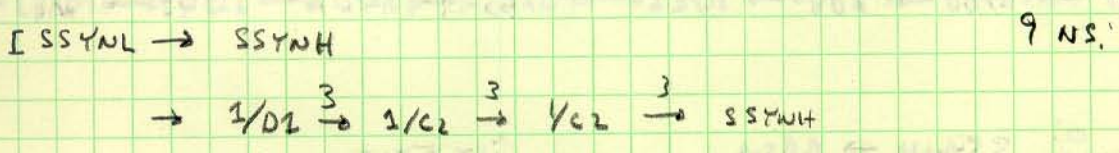 [ SSYNL → SSYNH 9 NS.
→ 1/D1 →3 1/C2 →3 1/C2 →3 SSYNH